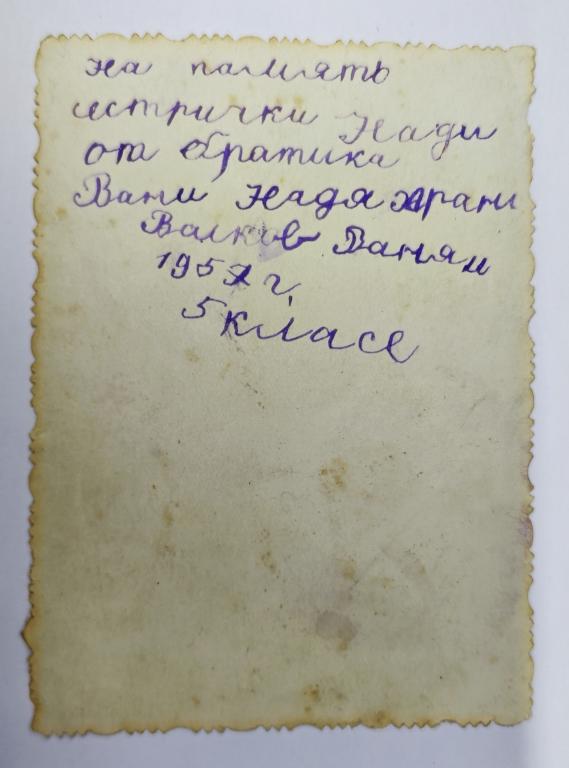 на память
сестрички Нади
от братика
Вани Надя храни
Валков Ваня и
1957 г.
5 класе